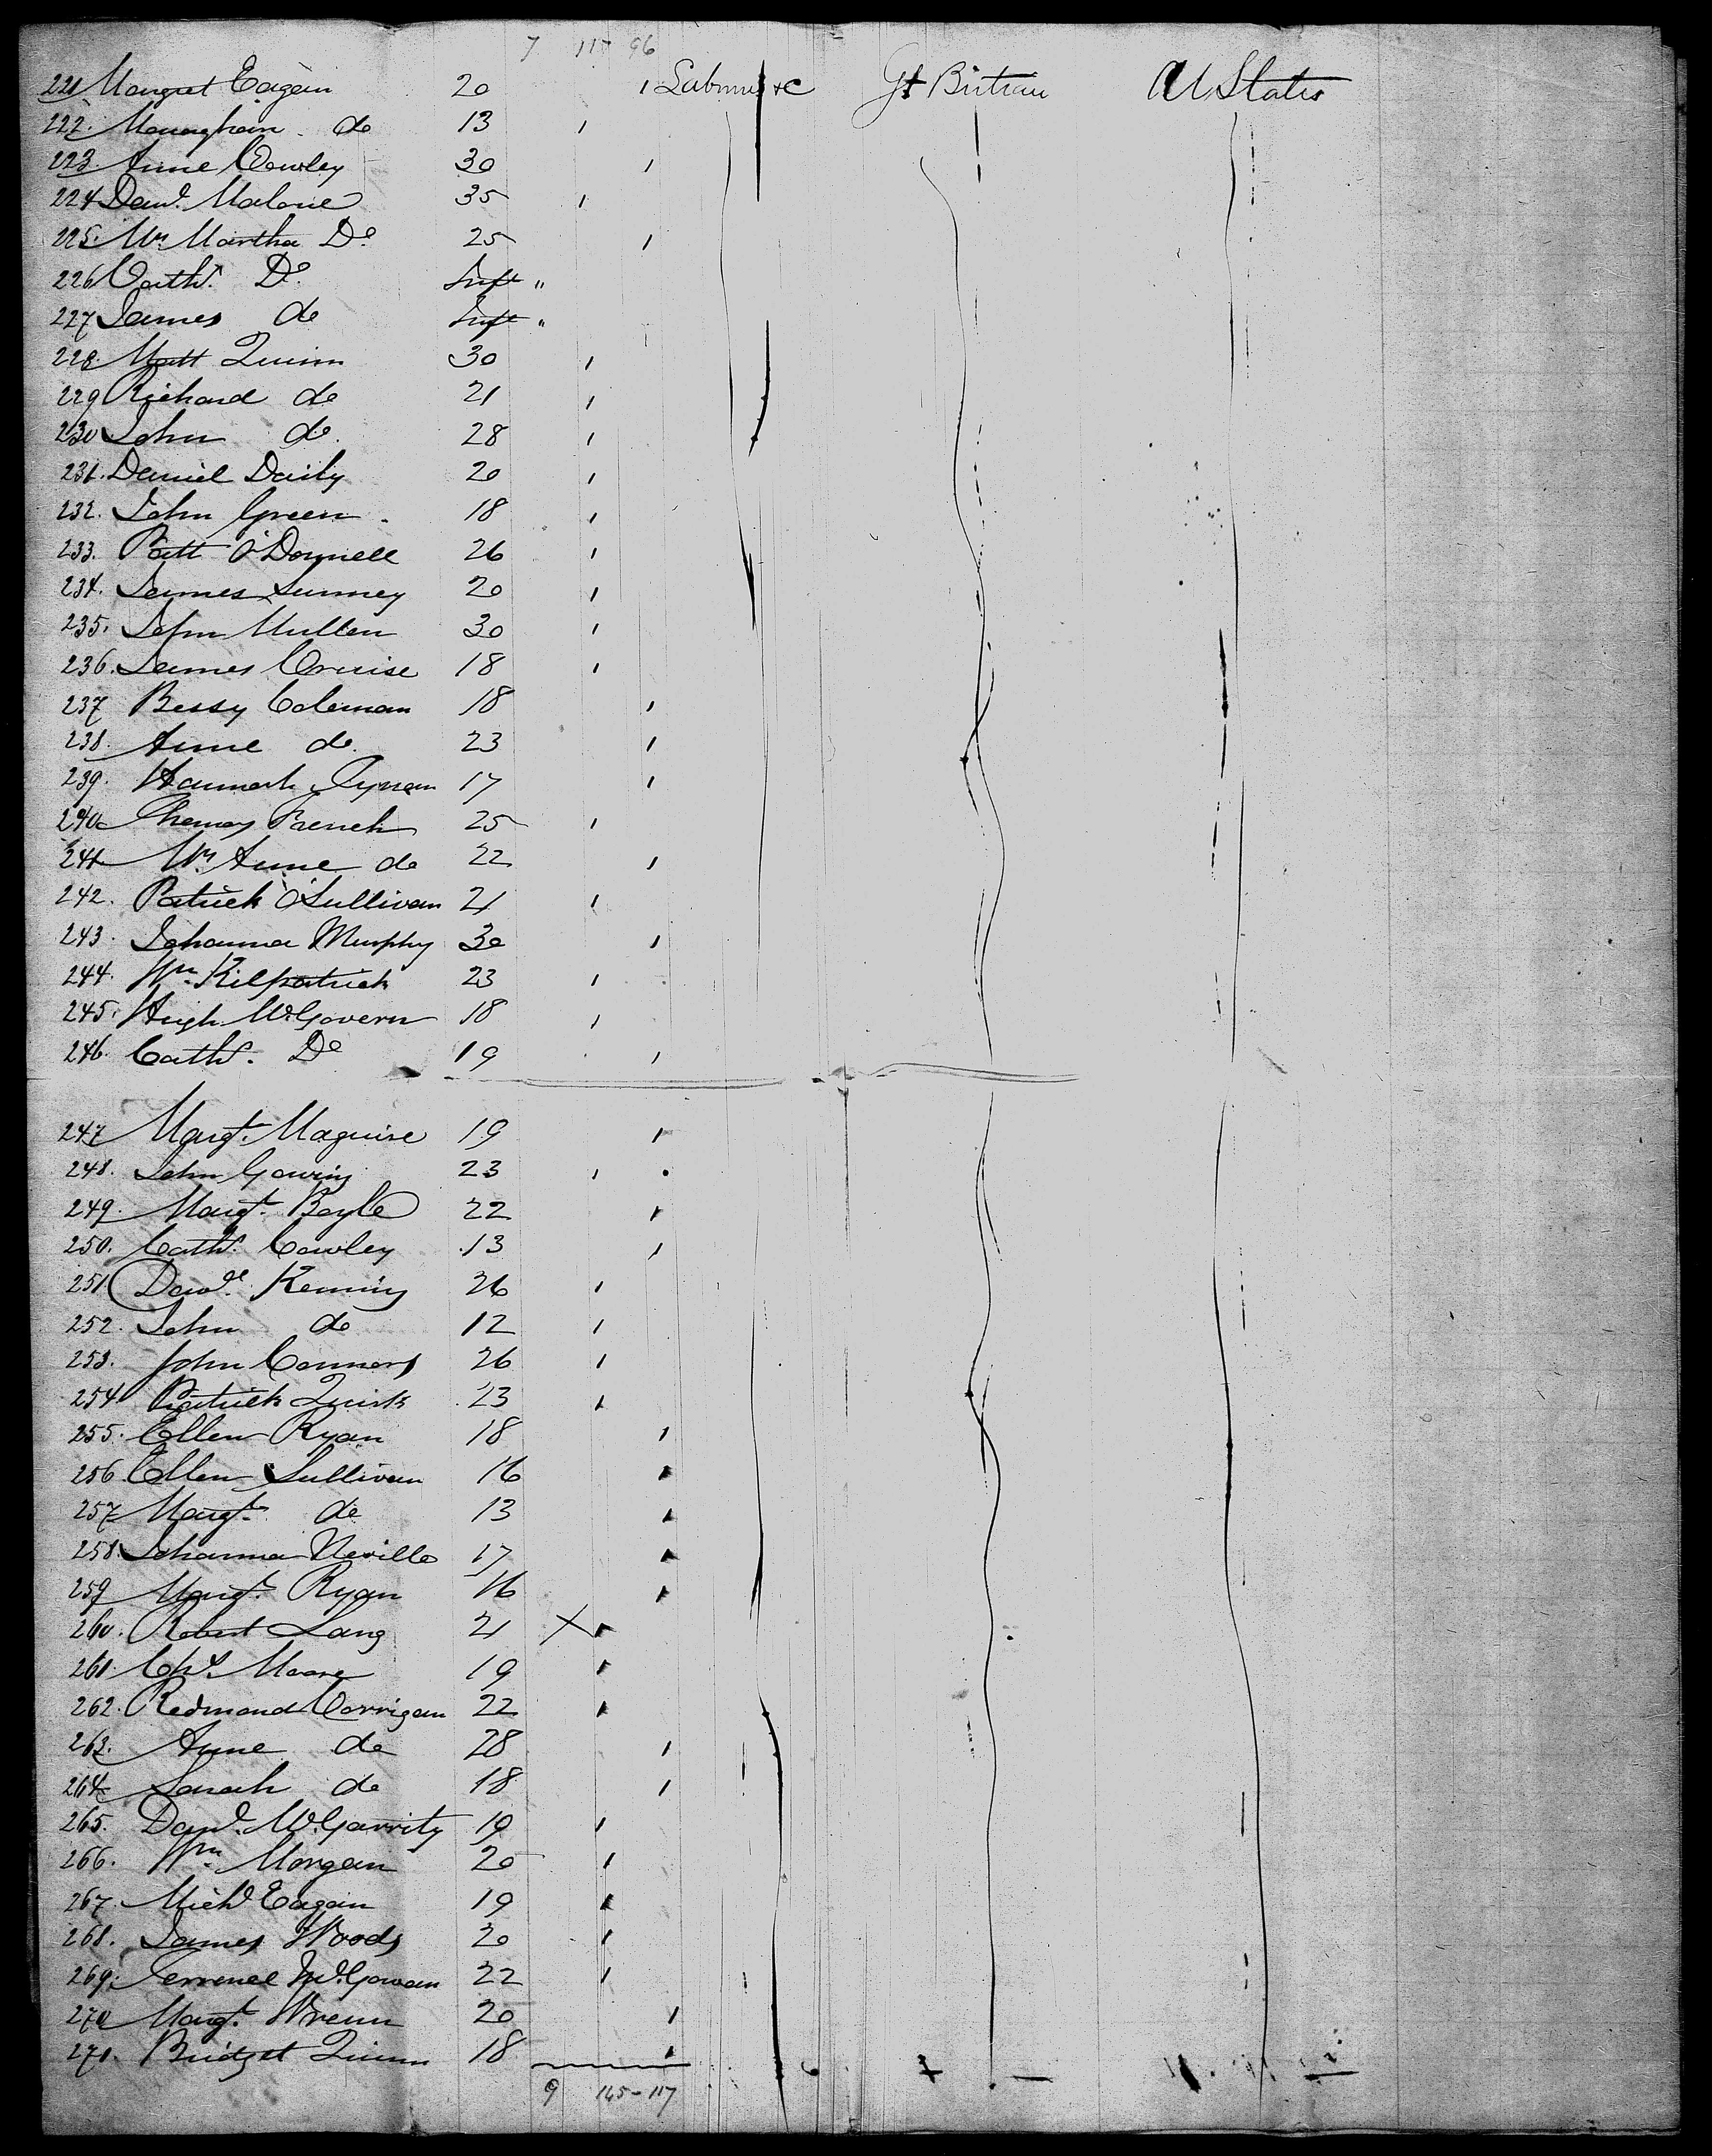 7 117 96
221 Margret Eagan 20 1 Labourers &c Gt Britain U States
222. Monaghan de 13 1
223. Anne Cowley 30 1
224 Dand. Malone 35 1
225. Mrs Martha Do 25 1
226 Cathe. Do. Inft "
227 James de Inft "
228. Matt Quinn 30 1
229 Richard de 21 1
230 John de. 28 1
231. Daniel Daily 20 1
232. John Green. 18 1
233. Patt O'Donnell 26 1
234. James Sunney 20 1
235. John Mullen 30 1
236. James Cruise 18 1
237 Bessy Coleman 18 1
238. Anne de. 23 1
239. Hannah Tynan 17 1
240 Thomas French 25 1
241 Mrs Anne de 22 1
242. Patrick O'Sullivan 21 1
243. Johanna Murphy 30 1
244. Wm Kilpatrick 23 1
245. Hugh McGovern 18 1
246. Cathe. Do 19 1
247 Margt. Maguire 19 1
248. John Gowing 23 1
249. Margt. Boyle 22 1
250. Cathe. Cowley 13 1
251 Dand. Kenning 26 1
252. John de 12 1
253. John Connors 26 1
254 Patrick Quirk 23 1
255. Ellen Ryan 18 1
256. Ellen Sullivan 16 1
257 Margt. de 13 1
258. Johanna Neville 17 1
259 Margt. Ryan 16 1
260. Robert Lang 21 X 1
261. Chs. Moore 19 1
262. Redmond Corrigan 22 1
263. Anne de 28 1
264 Sarah de 18 1
265. Dand. McGarrity 19 1
266. Wm Morgan 20 1
267. Michl Eagan 19 1
268. James Woods 20 1
269. Terrence McGowan 22 1
270 Margt. Wrenn 20 1
271. Bridget Quinn 18 1
9 145-117